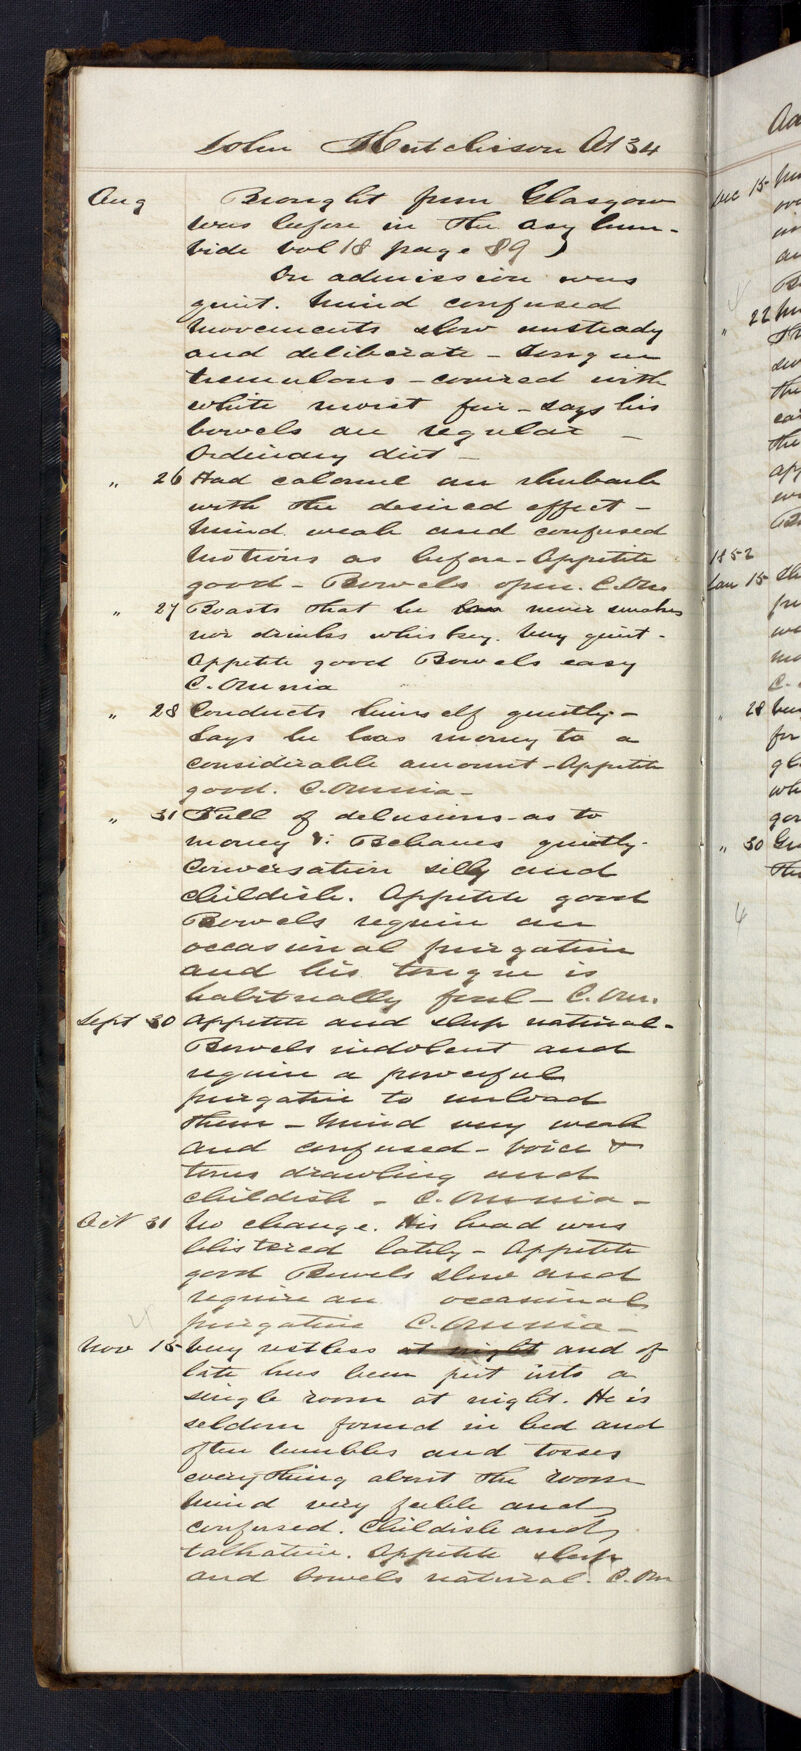 John Hutchison Æt 34
Aug Brought from Glasgow
was before in the asylum -
vide Vol 18 page 89)
On admission was
quiet. Mind confused
movements slow unsteady
and deliberate - Tongue
tremulous - covered with
white moist fur - says his
bowels are regular -
Ordinary diet -
" 26 Had calomel an rhubarb
with the desired effect -
Mind weak and confused
Motions as before - Appetite
good - Bowels open. C. Om
" 27 Boasts that he never smokes
nor drinks whiskey. Very quiet -
Appetite good Bowels easy
C. Omnia
" 28 Conducts himself quietly -
Says he has money to a
considerable amount - Appetite
good. C. Omnia -
" 31 Full of delusions - as to
money &: Behaves quietly -
Conversation silly and
childish. Appetite good
Bowels require an
occasional purgative
and his tongue is
habitually foul - C. Om.
Sept 30 Appetite and sleep natural -
Bowels indolent and
require a powerful
purgative to unload
them - Mind very weak
and confused - Voice &
tones drawling and
childish - C. Omnia -
Oct 31 No change. His head was
blistered lately - Appetite
good Bowels slow and
require an occasional
purgative C. Omnia -
Nov 15 Very restless at night and of
late has been put into a
single room at night. He is
seldom found in bed and
often tumbles and tosses
everything about the room
Mind very feeble and
confused. Childish and
talkative. Appetite sleep
and bowels natural. C. Om
Dec 15
" 22
1852
Jan 15
" 28
" 30